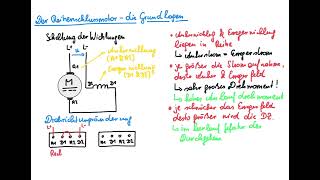 Der Reihenschlussmotor - die Grundlagen
Schaltung der Wicklungen
L+
L-
Ankerwicklung
(A1 A2)
Erregerwicklung
(D1 D2)
M
Drehrichtungsänderung
Ankerwicklung & Erregerwicklung
liegen in Reihe
↳ Ankerstrom = Erregerstrom
* je größer die Stromaufnahme,
desto Anker & Erregerfeld
↳ sehr großes Drehmoment!
↳ hohes Anlaufdrehmoment
* je schwächer das Erregerfeld
desto größer wird die DZ.
↳ im Leerlauf Gefahr des
Durchgehens